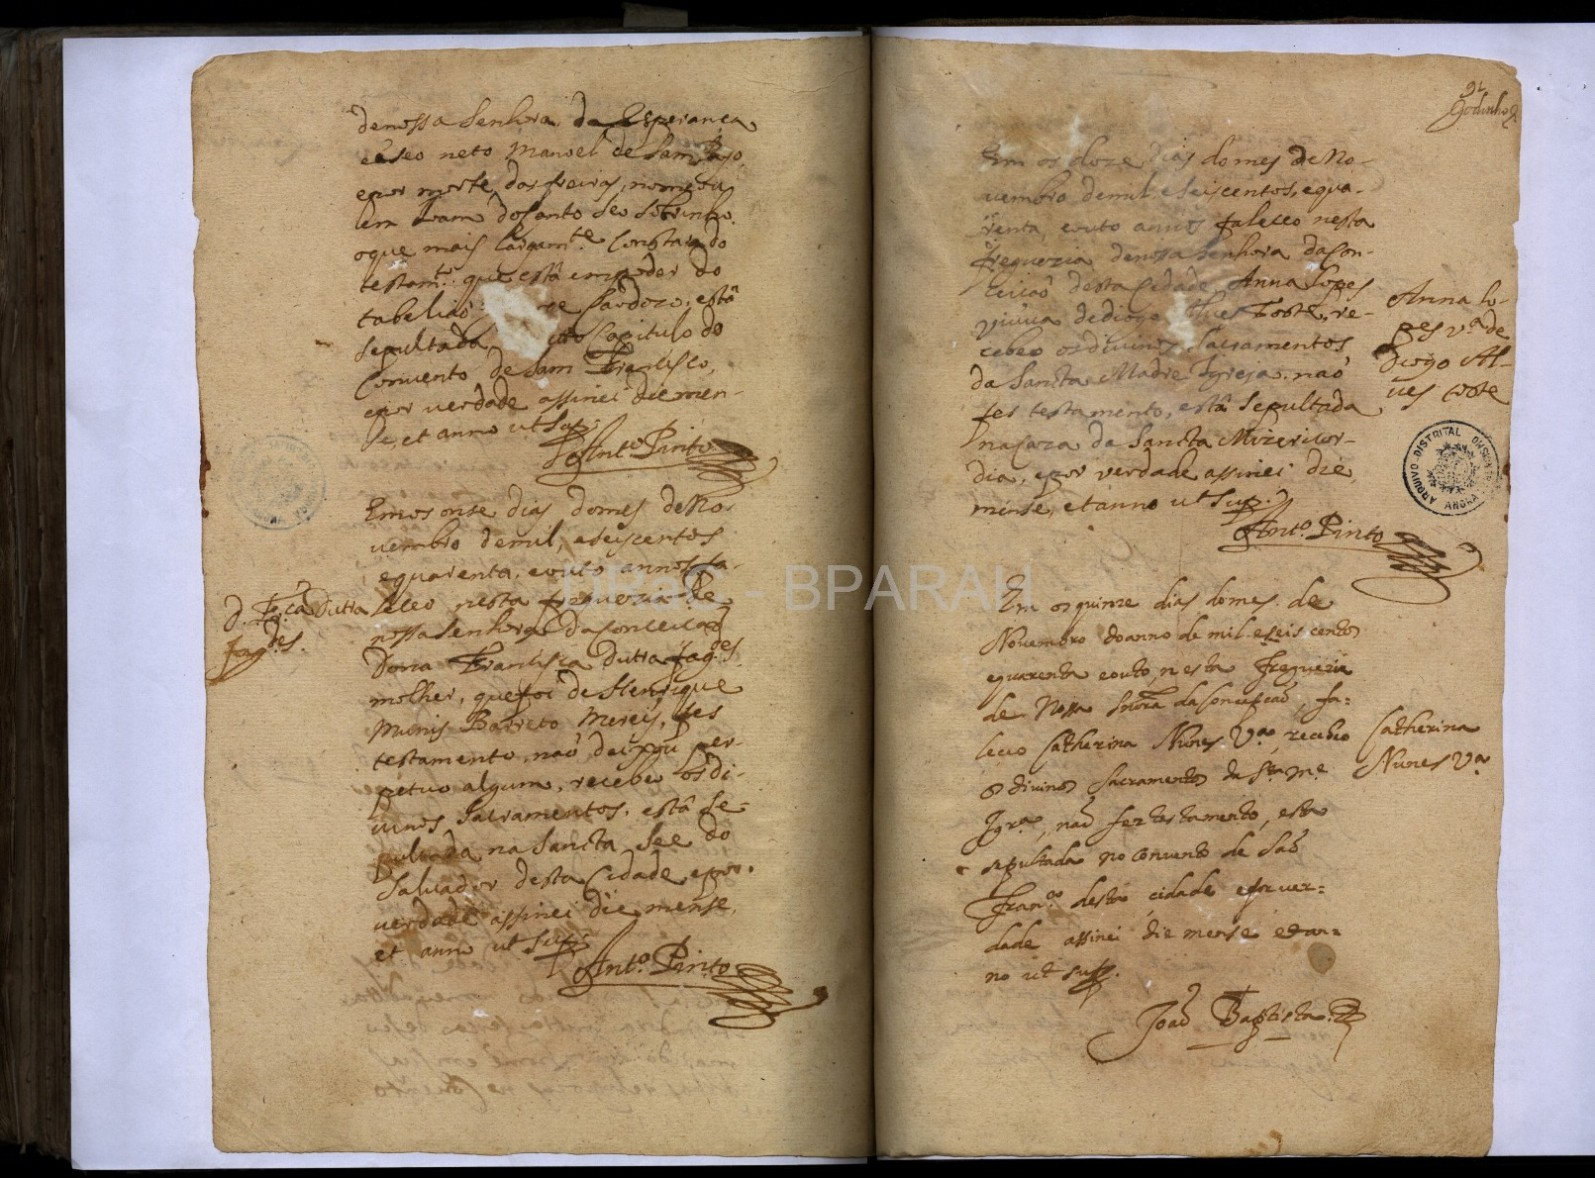 de nossa Senhora da Esperança
e a seo neto Manoel de Sam Payo,
e por morte das freiras, nomeou
em Joam do Santo seo sobrinho,
o que mais largam.te constara do
testam.to que está em poder do
tabeliaõ Cardozo, está
sepultada, Capitulo do
Convento de Sam Francisco,
e por verdade assinei die men-
se, et anno ut Sup.
Ant.o Pinto
Em os onse dias do mes de No-
vembro de mil, e seiscentos
e quarenta, e outo annos, fa-
leceo nesta freguezia de
nossa Senhora da Conceicaõ
Dona Francisca Dutra fag.des
molher, que foi de Henrique
Munis Barreto Mereis, fes
testamento, naõ deixou per-
petuo algum, recebeo os di-
uinos Sacramentos, está se-
pultada na Sancta See do
Saluador desta Cidade, e por
verdade assinei die, mense,
et anno ut Sup.
Ant.o Pinto
D. Fr.ca Dutra
fag.des.
91
Godinho
Em os doze dias do mes de No-
uembro de mil e seiscentos, e qua-
renta, e outo annos faleceo nesta
freguezia de nossa Senhora da Con-
ceicaõ desta Cidade, Anna Lopes
viuua de diogo Alues Toste, re-
cebeo os diuinos Sacramentos
da Sancta Madre Igreja, naõ
fes testamento, está sepultada
na caza da Sancta Mizericor-
dia, e por verdade assinei die,
mense, et anno ut Sup.
Ant.o Pinto
Anna lo-
pes v.a de
Diogo Al-
ues toste
ARQUIVO DISTRITAL
ANGRA
Em os quinze dias do mes de
Nouembro do anno de mil e seis centos
e quarenta e outo, nesta freguezia
de Nossa Snõra da Conceicaõ, fa-
leceo Catherina Nunes V.a, recebeo
os diuinos sacramentos da S.ta M.e
Igr.a, naõ fez testamento, esta
sepultada no conuento de Saõ
Fran.co desta cidade e por uer=
dade assinei die mense et an=
no ut sup.
Joaõ Baptista
Catherina
Nunes V.a
BPARAH